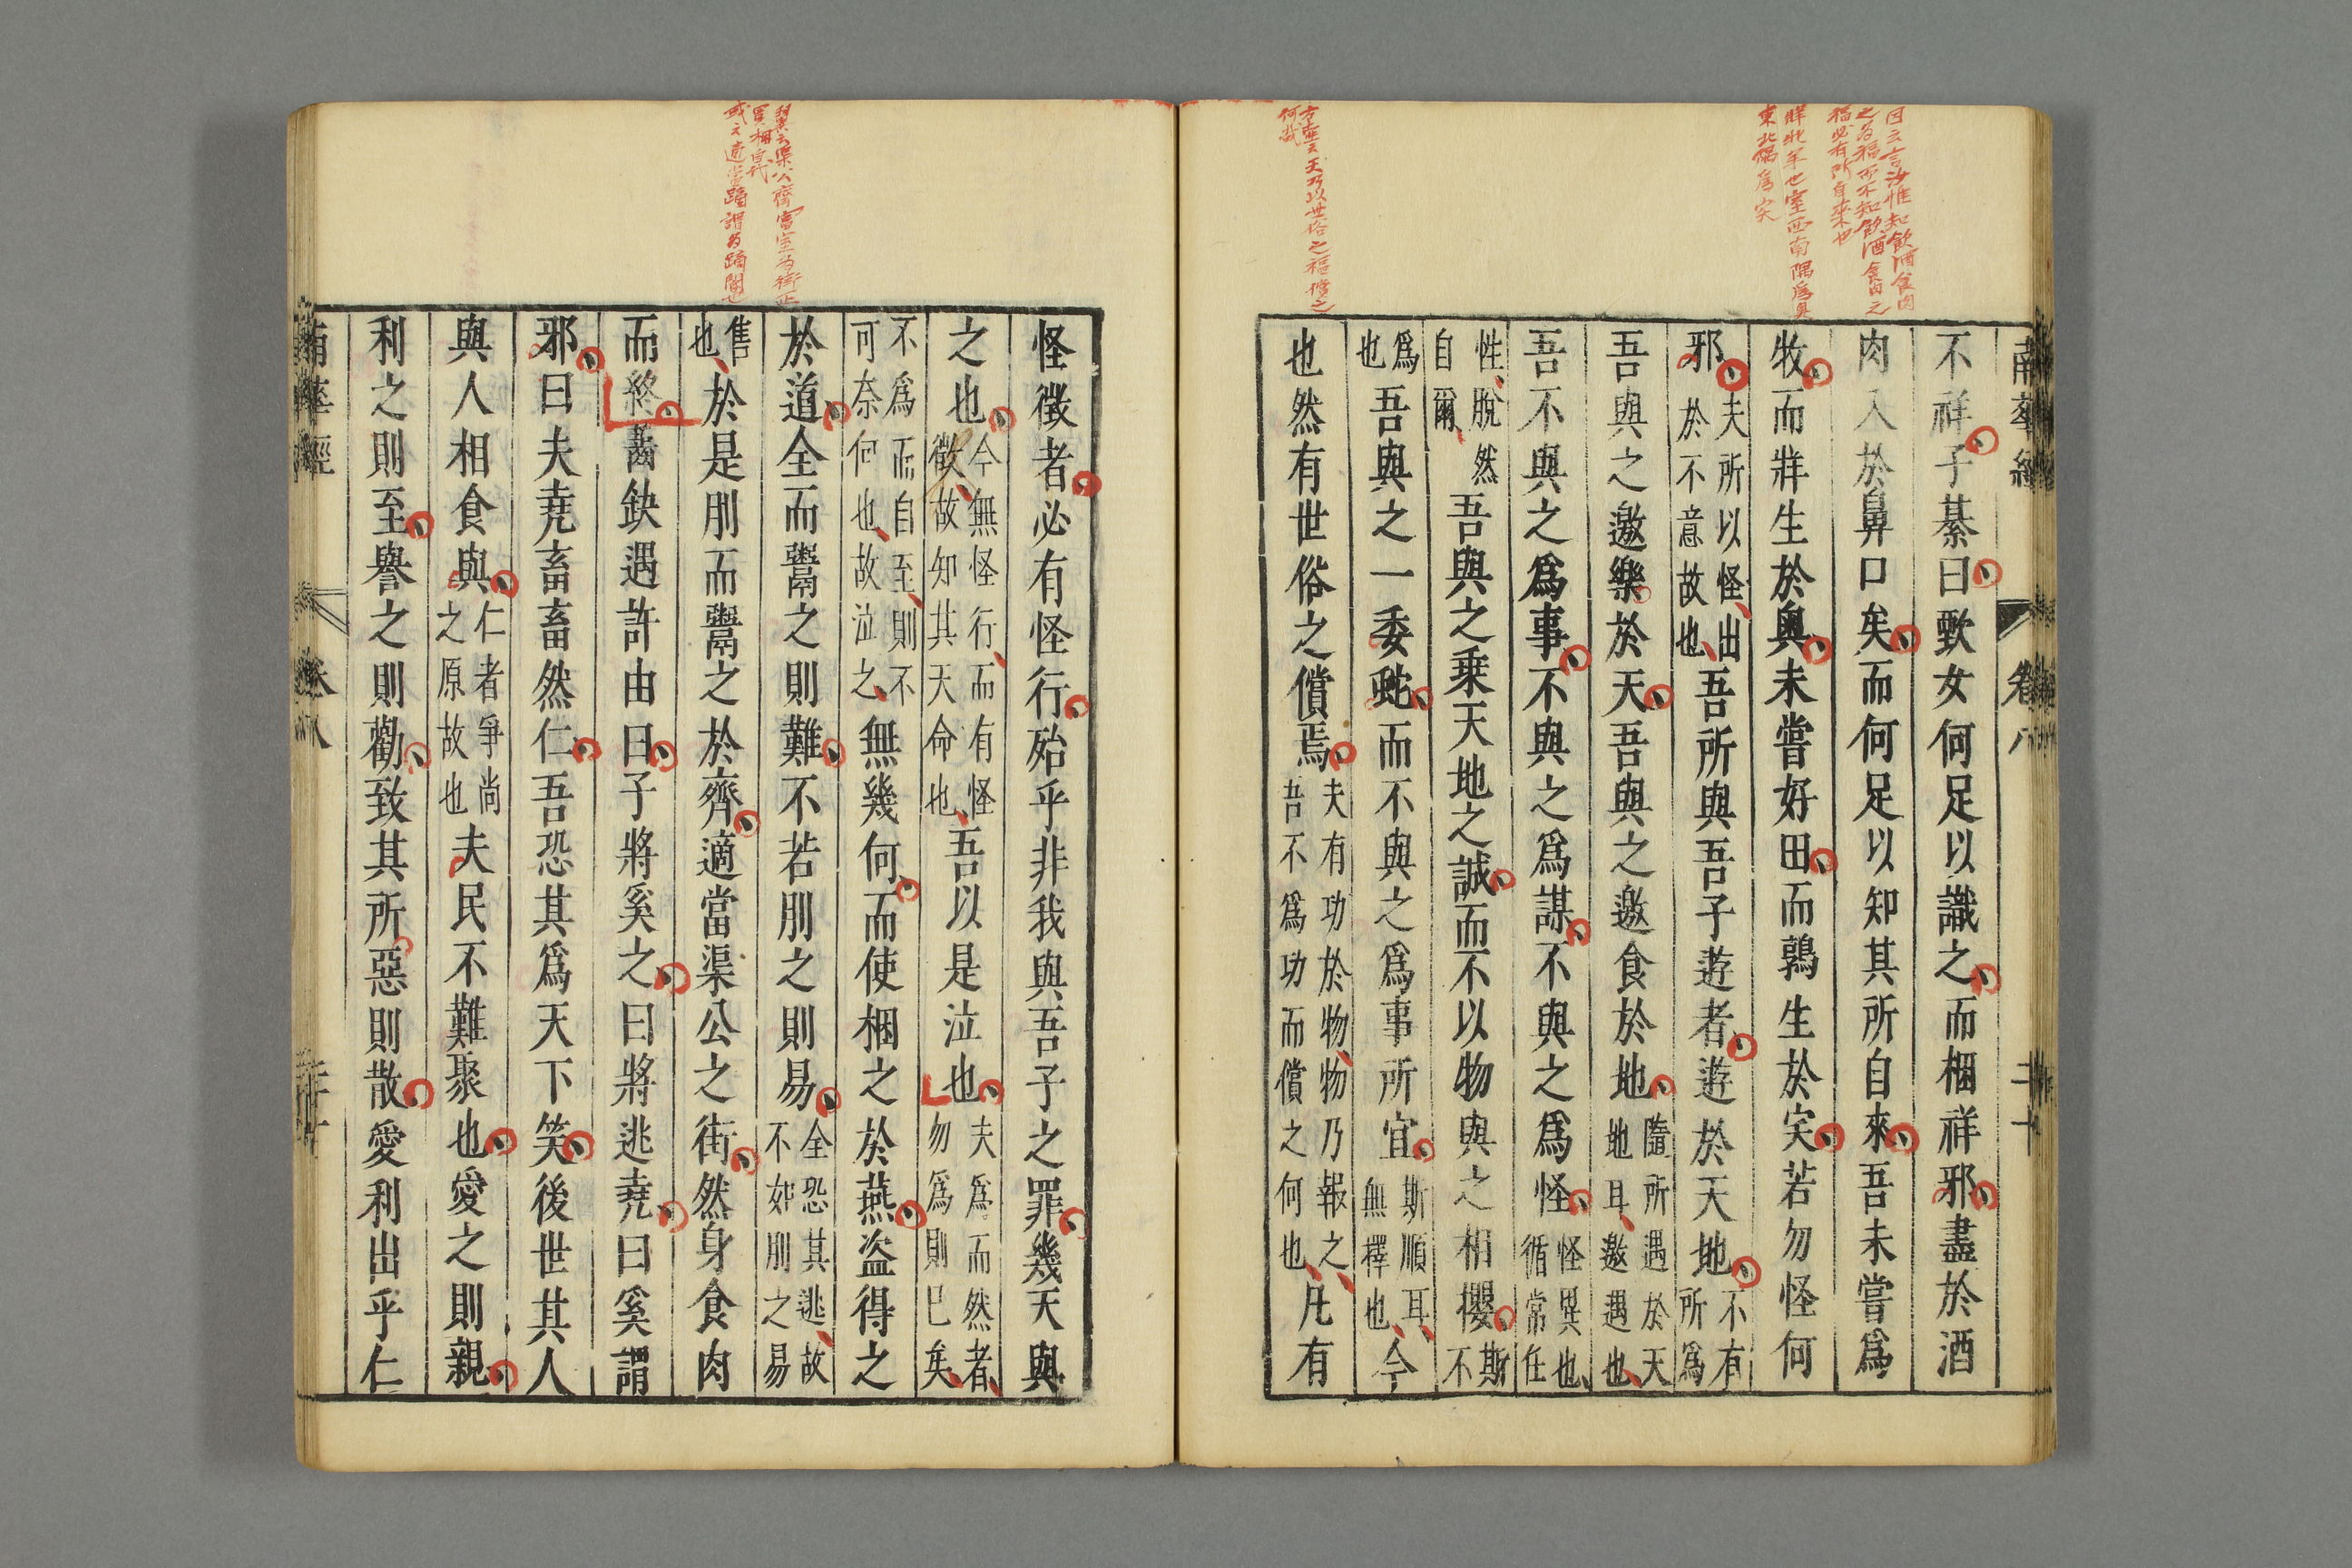 因之言汝惟知飲酒食肉
之为福而不知飲酒食肉之
福必有所自來也
牂牝羊也室西南隅爲奥
東北隅爲宎
天乃以世俗之福償之
何哉
南華經 卷八 二十
不祥子綦曰歅女何足以識之而梱祥邪盡於酒
肉入於鼻口矣而何足以知其所自來吾未嘗爲
牧而牂生於奧未嘗好田而鶉生於宎若勿怪何
邪夫所以怪出於不意故也吾所與吾子遊者遊於天地不有所爲
吾與之邀樂於天吾與之邀食於地隨所遇於天地耳邀遇也
吾不與之爲事不與之爲謀不與之爲怪怪異也循常任
性脫然自爾吾與之乘天地之誠而不以物與之相攖斯不
爲也吾與之一委蛇而不與之爲事所宜斯順耳無擇也今
也然有世俗之償焉夫有功於物物乃報之吾不爲功而償之何也凡有
翼云渠公齊富室为街正
買梱自代
或云適當踊謂为踊閽也
怪徵者必有怪行殆乎非我與吾子之罪幾天與
之也今無怪行而有怪徵故知其天命也吾以是泣也夫爲而然者勿爲則已矣
不爲而自至則不可奈何也故泣之無幾何而使梱之於燕盗得之
於道全而鬻之則難不若刖之則易全恐其逃故不如刖之易
售也於是刖而鬻之於齊適當渠公之街然身食肉
而終齧缺遇許由曰子將奚之曰將逃堯曰奚謂
邪曰夫堯畜畜然仁吾恐其爲天下笑後世其人
與人相食與仁者爭尚之原故也夫民不難聚也愛之則親
利之則至譽之則勸致其所惡則散愛利出乎仁
南華經 卷八